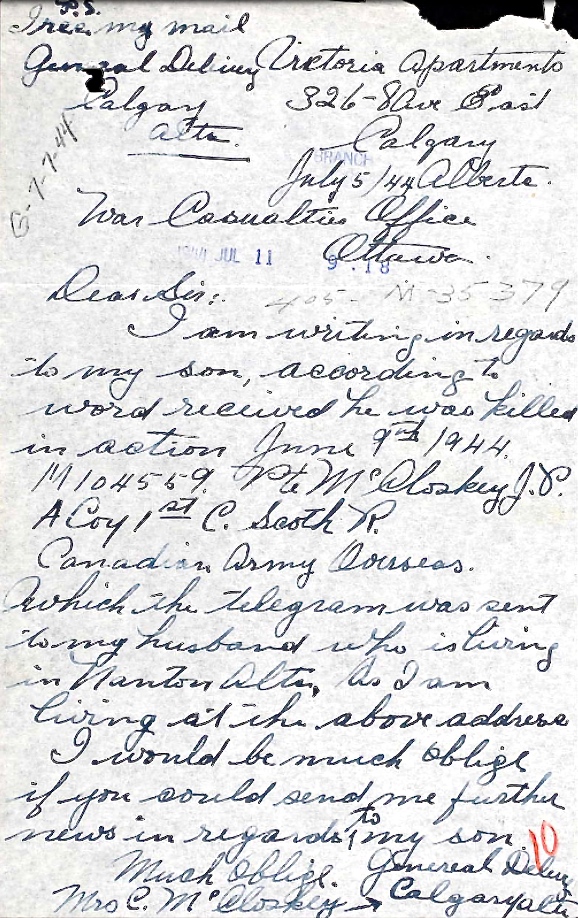 P.S.
I rec. my mail
General Delivey
Calgary
Alta.
Victoria Apartments
326-8 Ave East
Calgary
BRANCH
July 5/44 Alberta.
War Casualties Office
Ottawa.
JUL 11 9 18
Dear Sir:
405- M-35379
I am writing in regards
to my son, according to
word received he was killed
in action June 9th 1944.
M104559. Pte McCloskey J.P.
A Coy 1st C. Scoth R.
Canadian Army Overseas.
Which the telegram was sent
to my husband who is living
in Nanton Alta, As I am
living at the above address
I would be much oblige
if you could send me further
news in regards to my son.
10
Much Oblige.
Mrs C. McCloskey
General Delivy
Calgary Alta